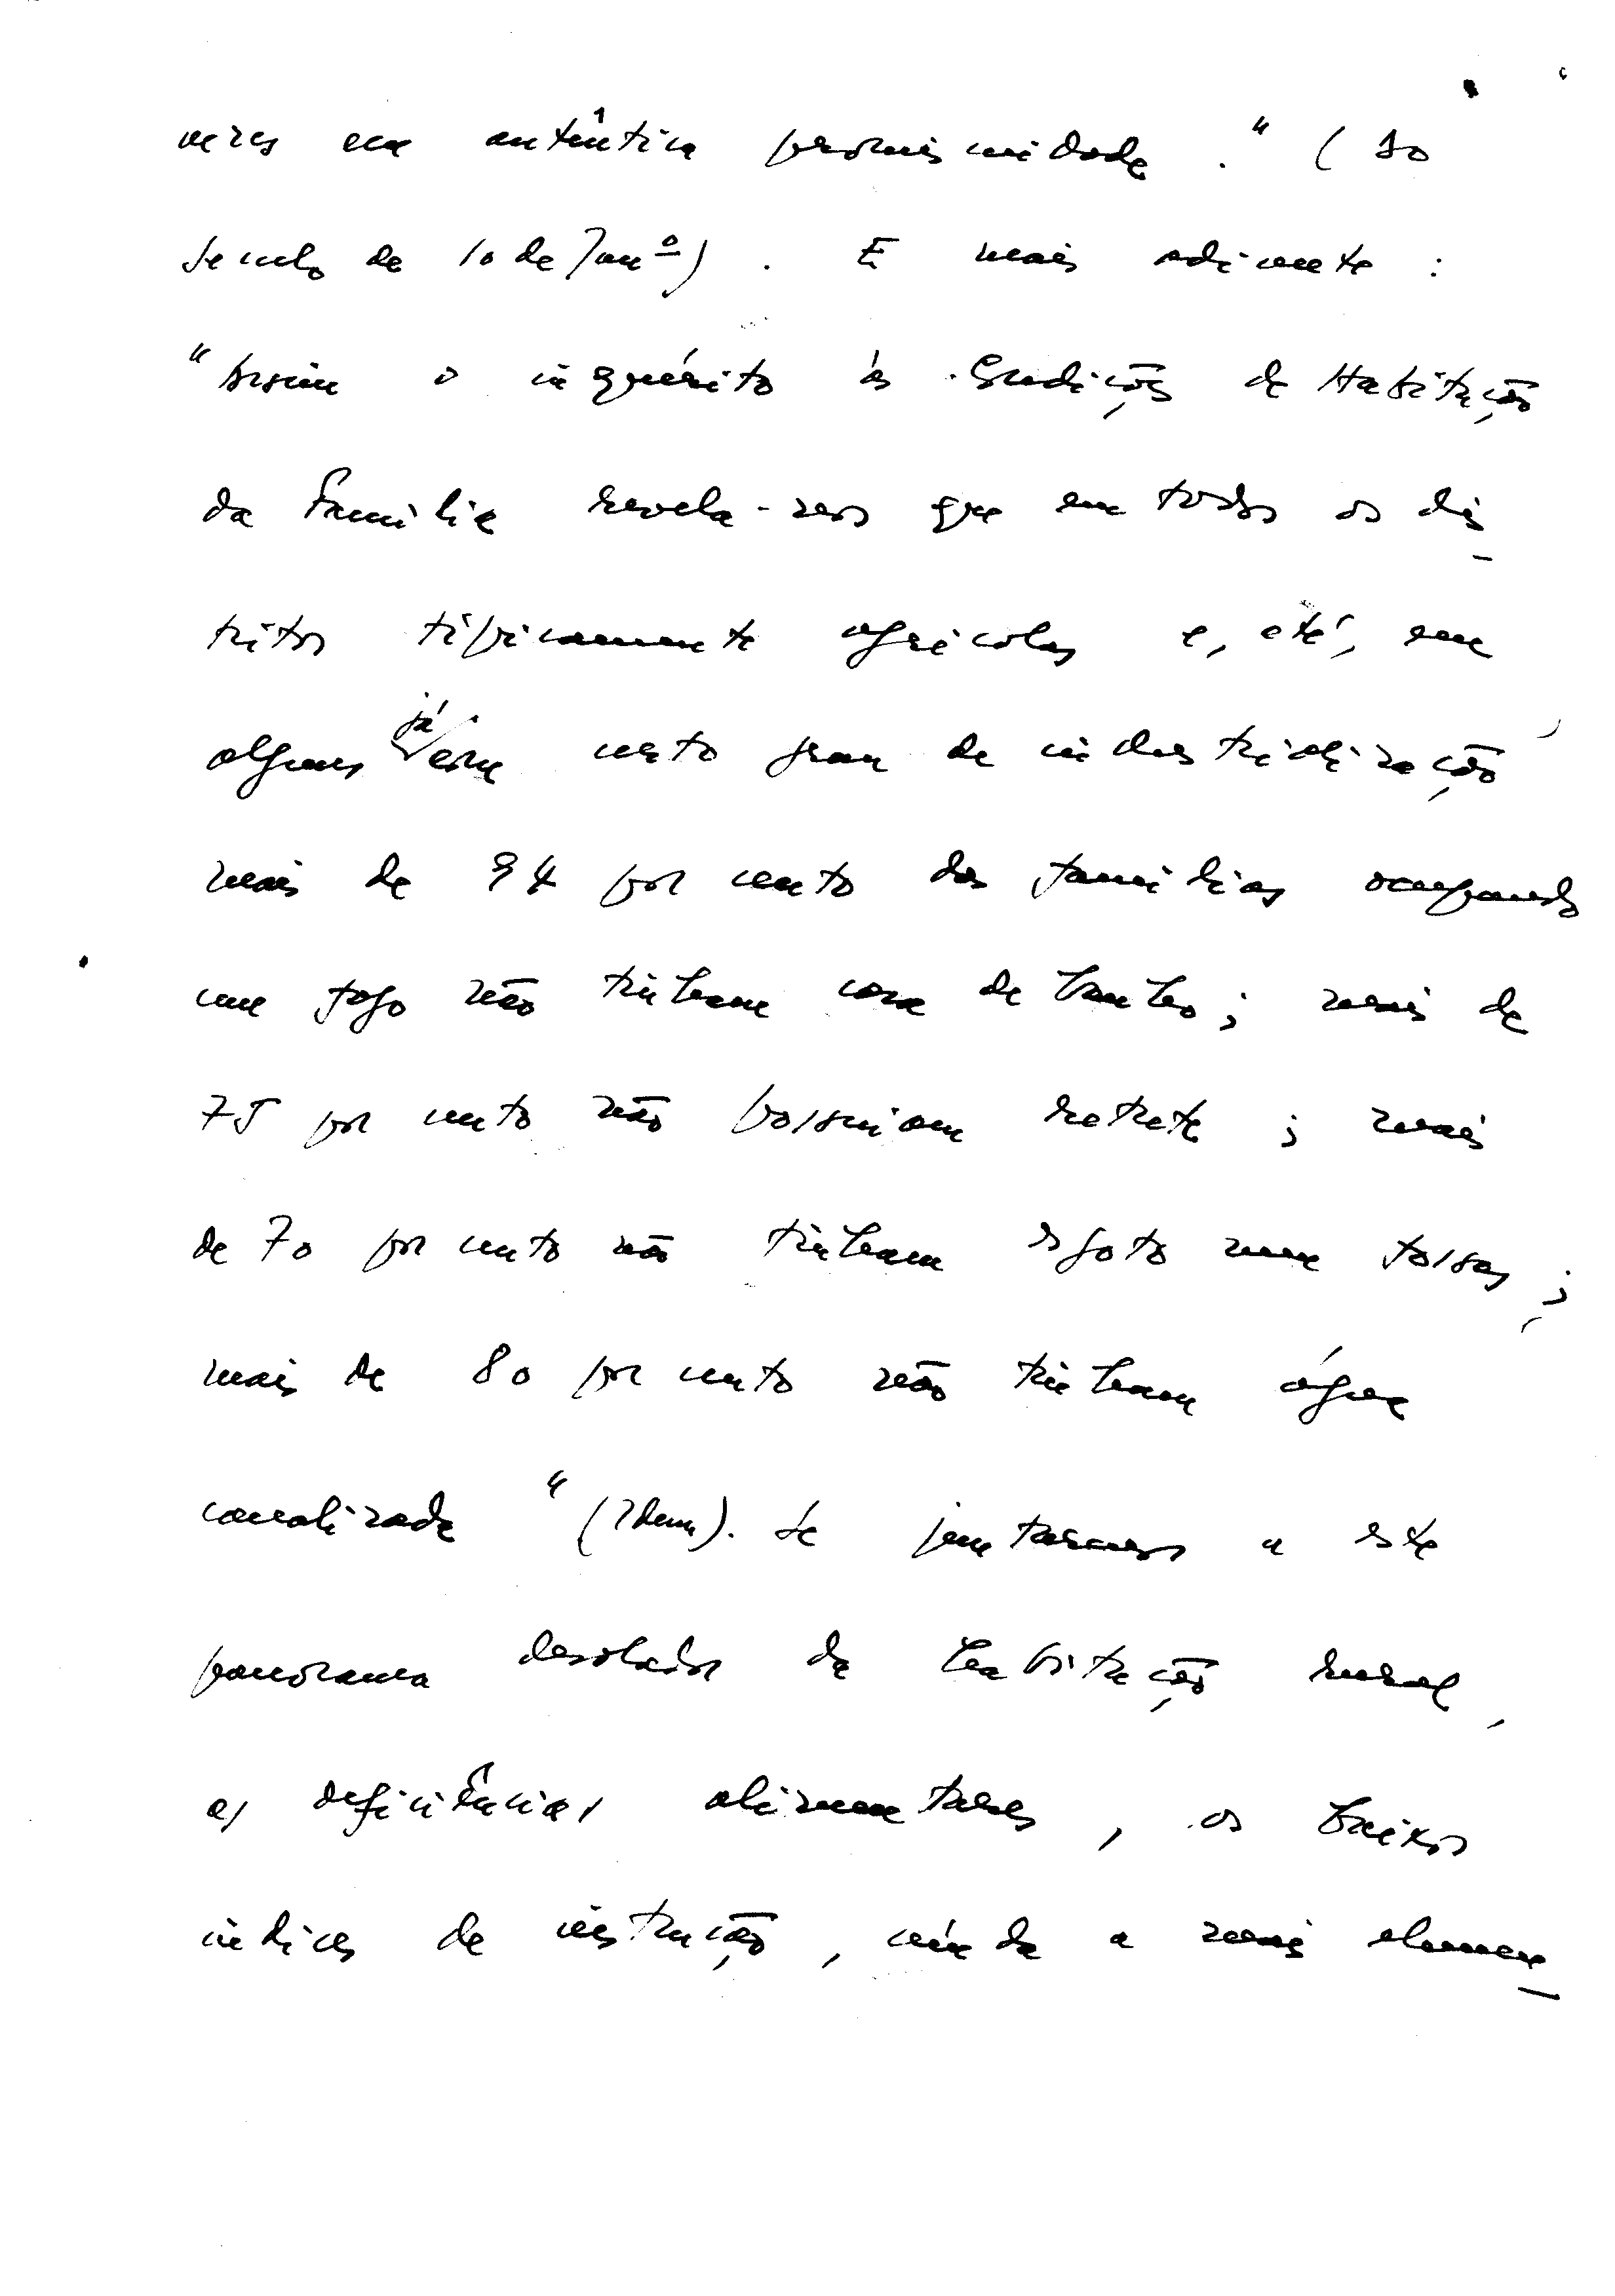 vezes em autêntica promiscuidade." (do
Seculo de 10 de Janº). E mais adiante:
"Assim o inquérito às Condições de Habitação
da Família revela-nos que em todos os dis-
tritos tipicamente agrícolas e, até, em
alguns já com certo grau de industrialização,
mais de 94 por cento das famílias ocupando
um fogo não tinham casa de banho; mais de
75 por cento não possuiam retrete; mais
de 70 por cento não tinham esgoto nem fossas;
mais de 80 por cento não tinham água
canalizada" (Idem). Se juntarmos a este
panorama desolador da habitação rural,
as deficiências alimentares, os baixos
indices de instrução, ainda a mais elemen-